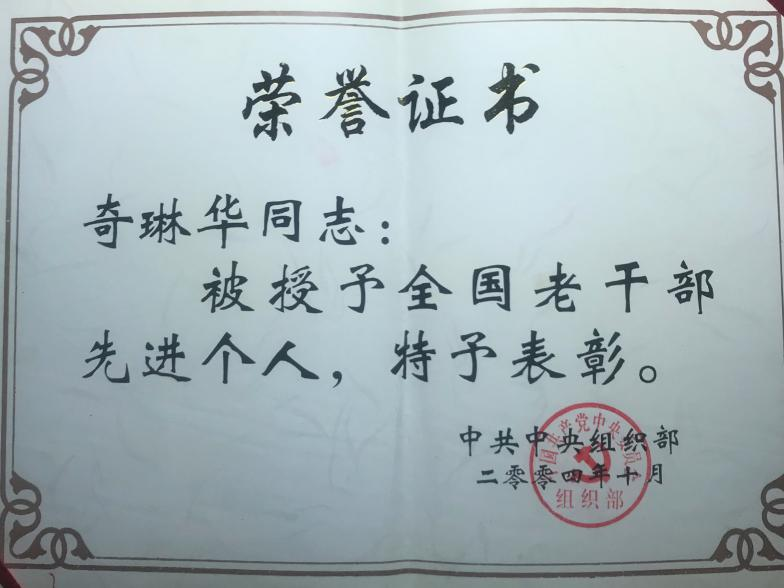 荣誉证书
奇琳华同志：
被授予全国老干部
先进个人，特予表彰。
中共中央组织部
二零零四年十月
中国共产党中央委员会
组织部